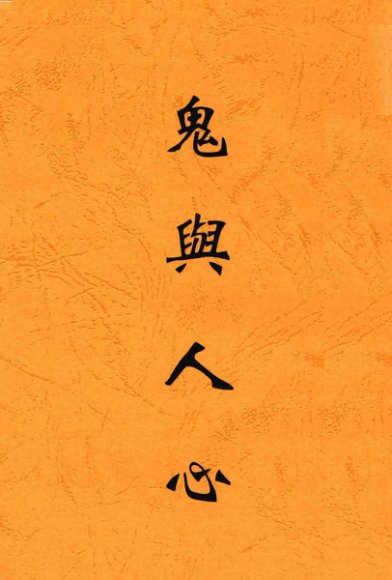 鬼與人心